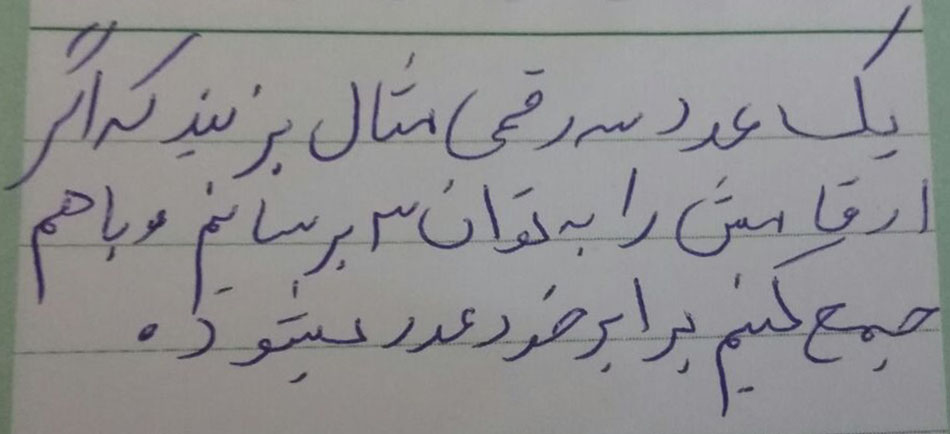 یک عدد سه رقمی مثال بزنید که اگر
ارقامش را به توان ۳ برسانیم و باهم
جمع کنیم برابر خود عدد میشود.